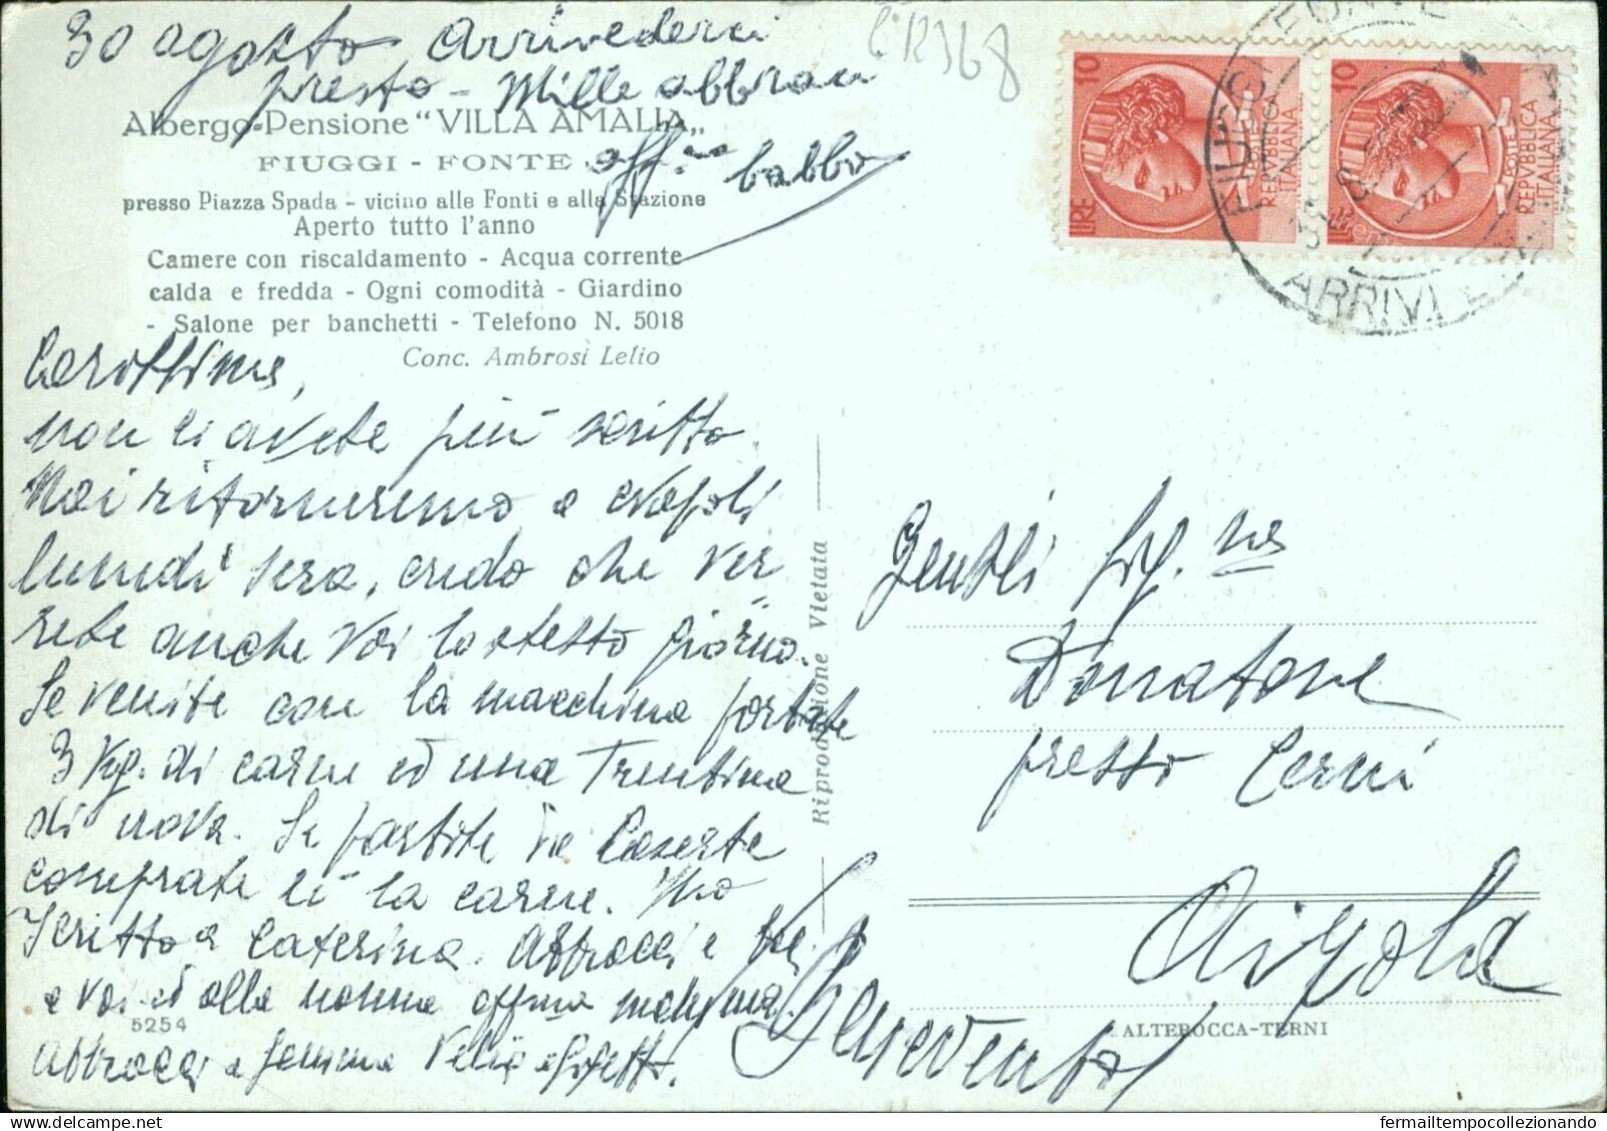 30 agosto Arrivederci
presto - Mille abbracci
aff.mo babbo
ci12368
Albergo-Pensione "VILLA AMALIA"
FIUGGI - FONTE
presso Piazza Spada - vicino alle Fonti e alla Stazione
Aperto tutto l'anno
Camere con riscaldamento - Acqua corrente
calda e fredda - Ogni comodità - Giardino
- Salone per banchetti - Telefono N. 5018
Conc. Ambrosi Lelio
Carissime,
non ci avete più scritto.
Noi ritorneremo a Napoli
lunedì sera, credo che ver
rete anche voi lo stesso giorno.
Se venite con la macchina portate
3 Kg. di carne ed una Trentina
di uova. Se partite da Caserta
comprate lì la carne. Ho
scritto a Caterina. Abbracci e
a voi ed alla nonna mamma.
Abbracci a Gemma
5254
Riproduzione Vietata
LIRE 10
POSTE
REPVBBLICA
ITALIANA
LIRE 10
POSTE
REPVBBLICA
ITALIANA
FIUGGI FONTE
ARRIVI E
Gentili Sig.ne
Donatone
presso Cerni
Airola
Benevento
ALTEROCCA-TERNI
fermailtempocollezionando